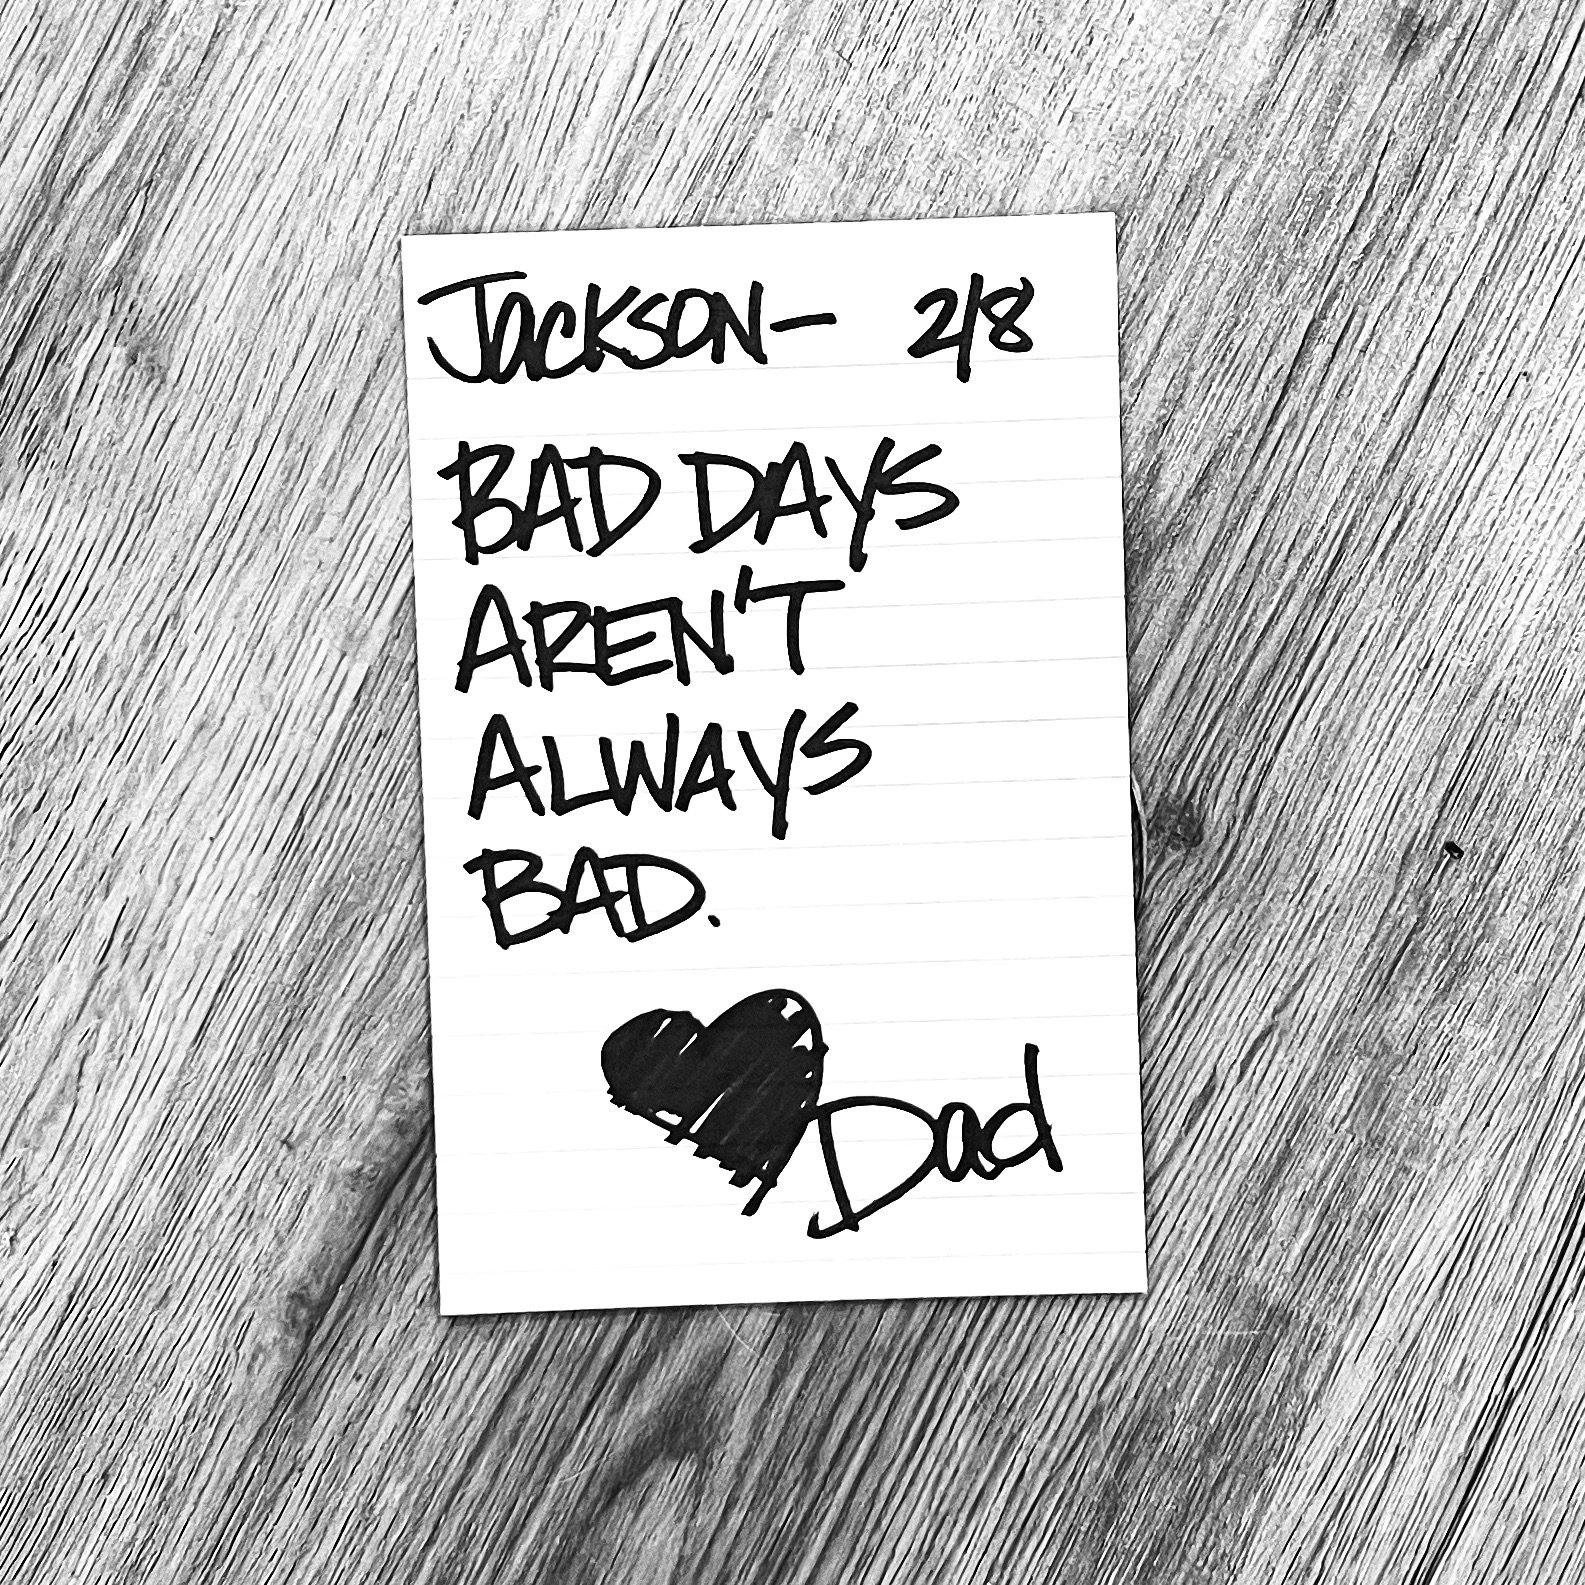 Jackson— 2/8
BAD DAYS
AREN'T
ALWAYS
BAD.
Dad